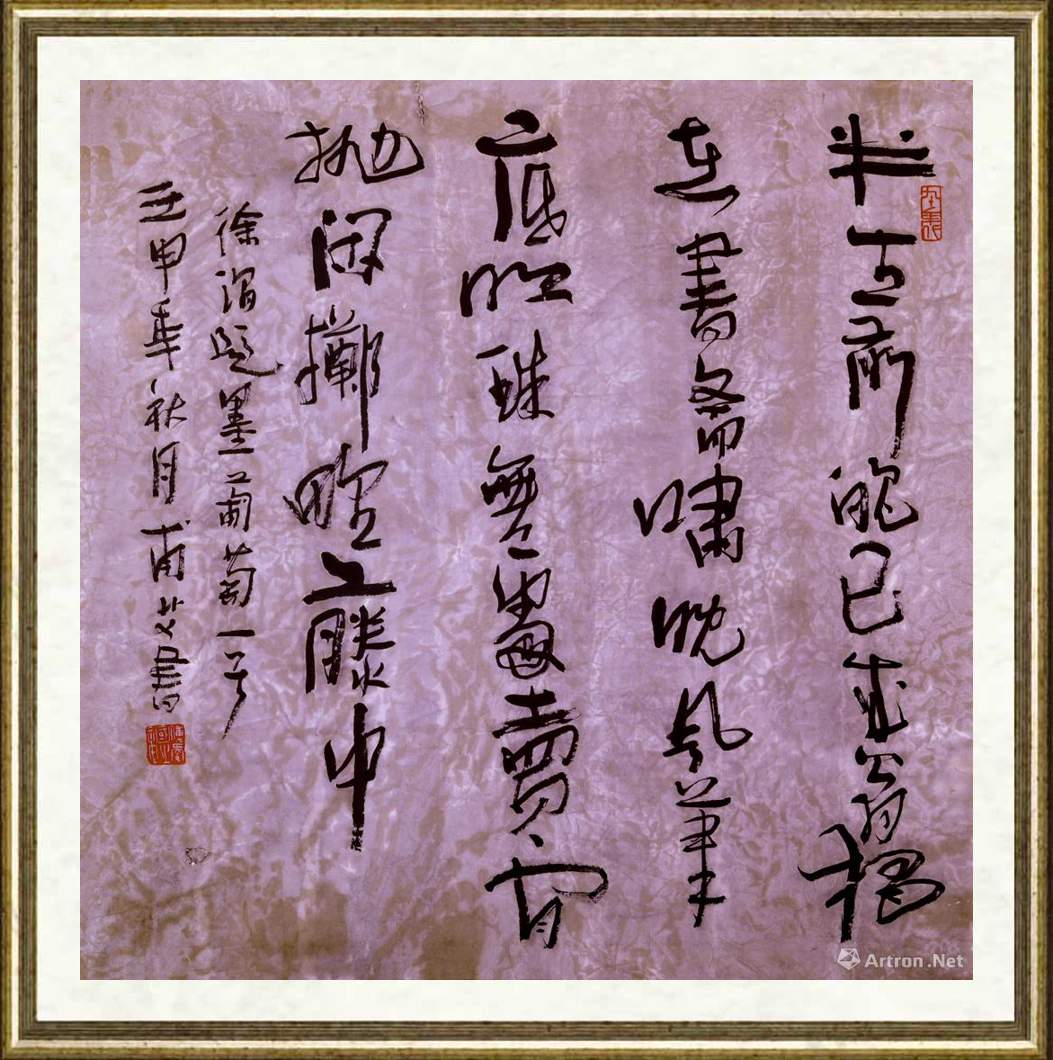 半生落魄已成翁獨
立書齋嘯晚風筆
底明珠無處賣閒
拋閑擲野藤中
徐渭題墨葡萄一首
壬申年秋月甫艾書
Artron.Net